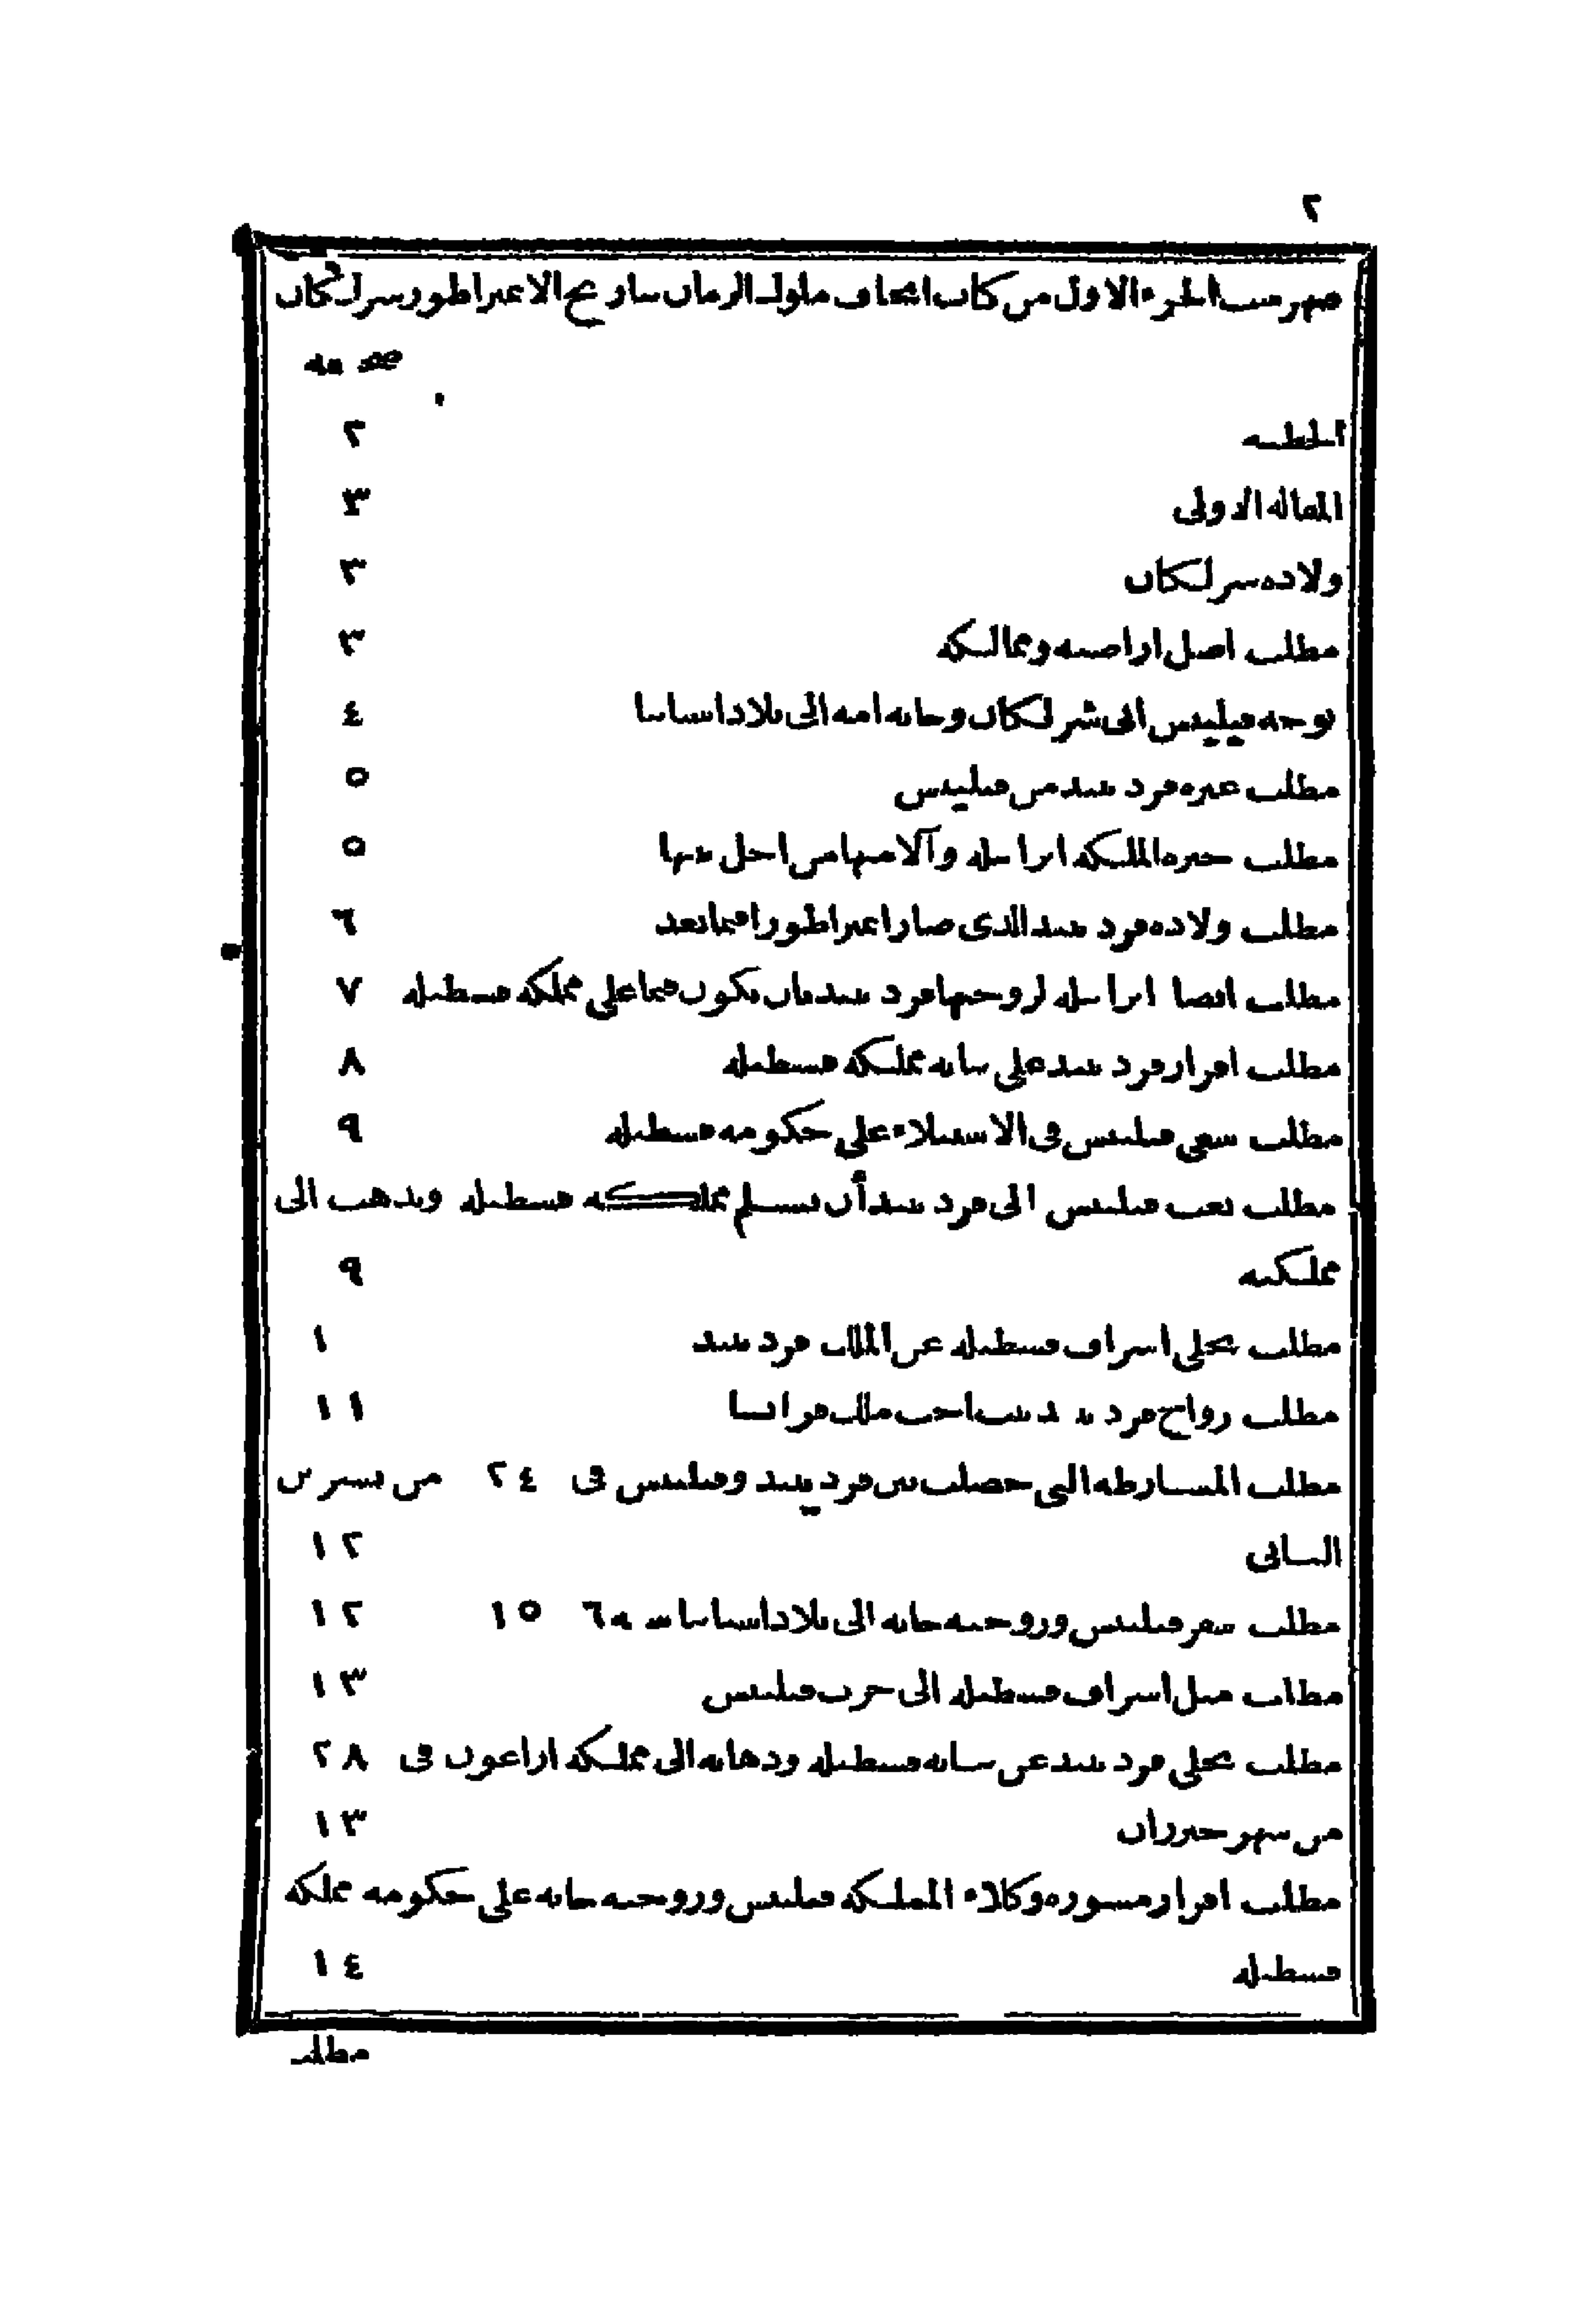 ٢
فهرست الجزء الاول من كتاب اتحاف ملوك الزمان بتاريخ الامبراطور شرلكان
صحيفه
الخطبه ٢
المقاله الاولى ٣
ولاده شرلكان ٣
مطلب اصل اراضيه وممالكه ٣
توجه فيليبش ابى شرلكان وحانه امه الى بلاد اسبانيا ٤
مطلب غيره فردينند من فيليبش ٥
مطلب حيره الملكه ايزابيله وآلامها من اجل بنتها ٥
مطلب ولاده فردينند الذى صار امبراطورا فيما بعد ٦
مطلب ايصا ايزابيله لزوجها فردينند بان يكون قيما على مملكه قسطيله ٧
مطلب اقرار فردينند على نيابه مملكه قسطيله ٨
مطلب سعى فيليبش فى الاستيلاء على حكومه قسطيله ٩
مطلب فيليبش الى فردينند أن يسلم مملكه قسطيله ويذهب الى
مملكته ٩
مطلب تخلى اشراف قسطيله عن الملك فردينند ١
مطلب زواج فردينند ببنت اخت ملك فرانسا ١١
مطلب المشارطه التى حصلت بين فردينند وفيليبش فى ٢٤ من تشرين
الثانى ١٢
مطلب سفر فيليبش وزوجته حانه الى بلاد اسبانيا سنه ١٥ ٦ ١٢
مطلب ميل اشراف قسطيله الى حزب فيليبش ١٣
مطلب تخلى فردينند عن نيابه قسطيله وذهابه الى مملكه اراغون فى ٢٨
من شهر حزيران ١٣
مطلب اقرار مشوره وكلاء المملكه فيليبش وزوجته حانه على حكومه مملكه
قسطيله ١٤
مطلب